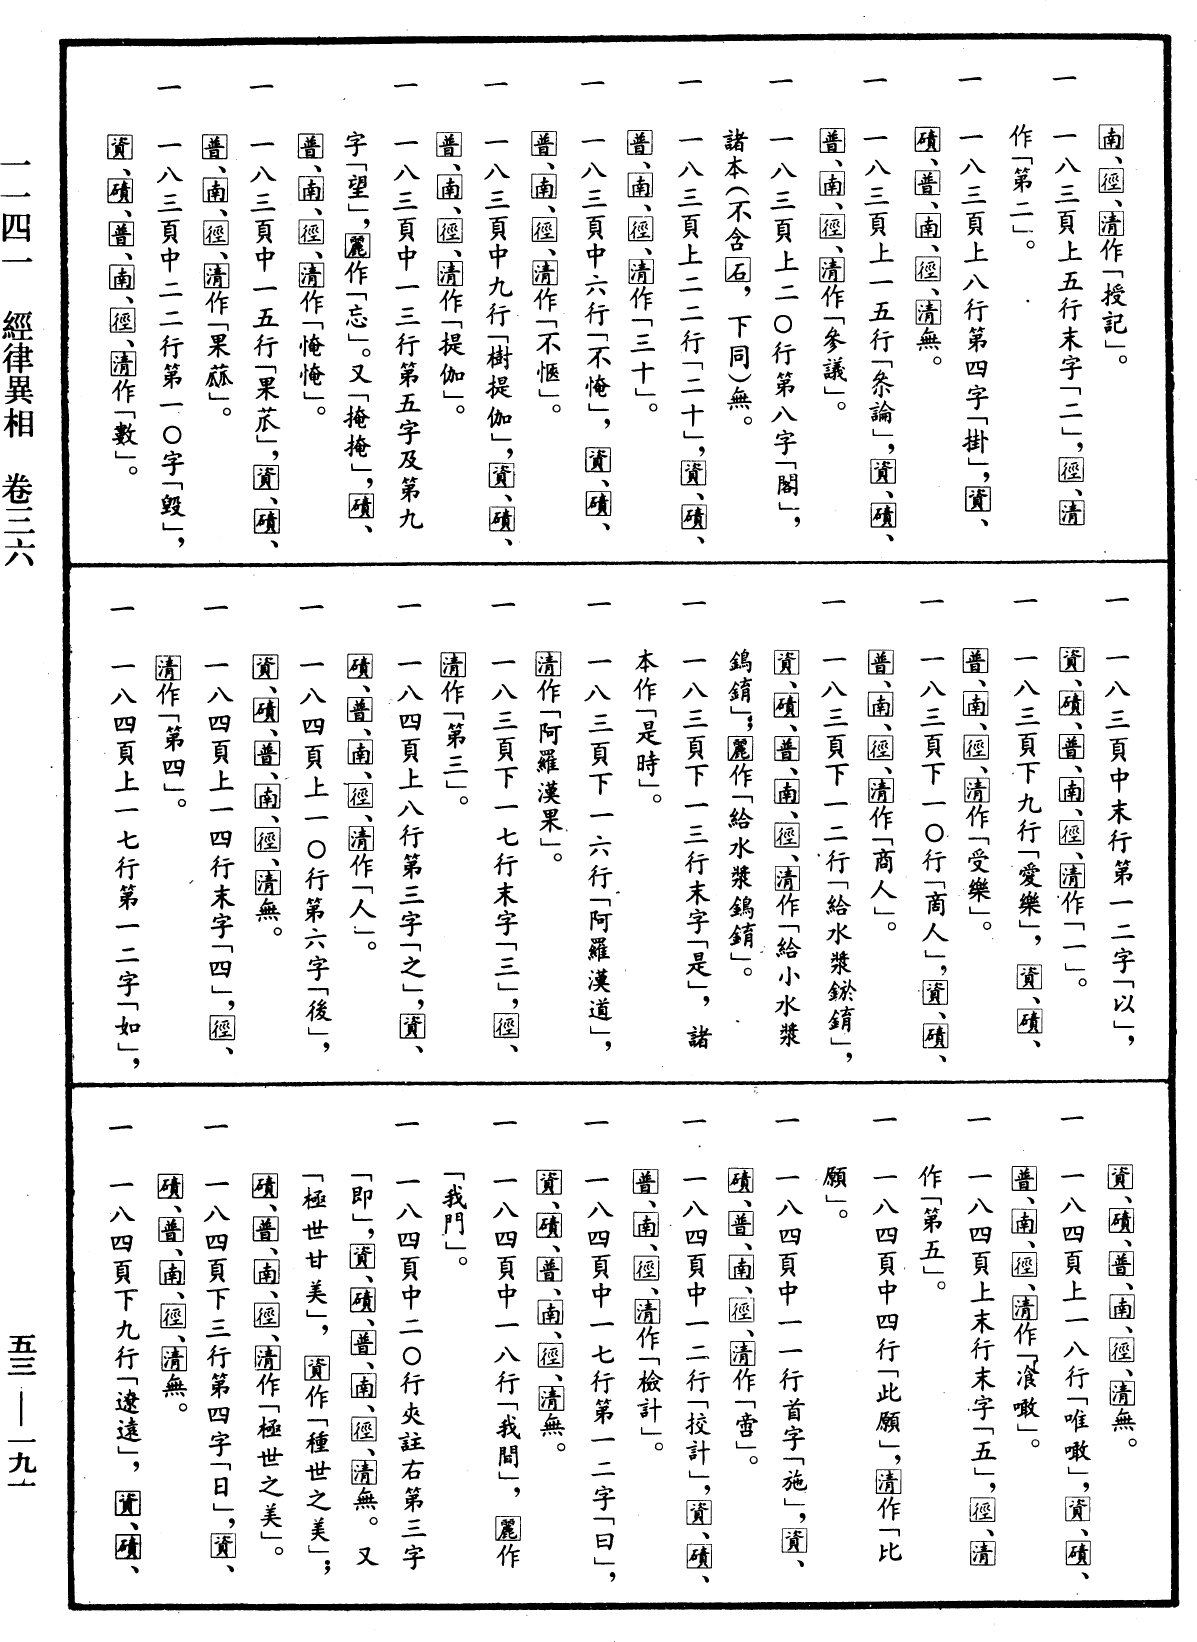 南、徑、清作「授記」。
一 一八三頁上五行末字「二」，徑、清
作「第二」。
一 一八三頁上八行第四字「掛」，資、
磧、普、南、徑、清無。
一 一八三頁上一五行「叅論」，資、磧、
普、南、徑、清作「參議」。
一 一八三頁上二〇行第八字「閣」，
諸本（不含石，下同）無。
一 一八三頁上二二行「二十」，資、磧、
普、南、徑、清作「三十」。
一 一八三頁中六行「不惓」，資、磧、
普、南、徑、清作「不愜」。
一 一八三頁中九行「樹提伽」，資、磧、
普、南、徑、清作「提伽」。
一 一八三頁中一三行第五字及第九
字「望」，麗作「忘」。又「掩掩」，磧、
普、南、徑、清作「㤿㤿」。
一 一八三頁中一五行「果苽」，資、磧、
普、南、徑、清作「果蓏」。
一 一八三頁中二二行第一〇字「毀」，
資、磧、普、南、徑、清作「數」。
一 一八三頁中末行第一二字「以」，
資、磧、普、南、徑、清作「一」。
一 一八三頁下九行「愛樂」，資、磧、
普、南、徑、清作「受樂」。
一 一八三頁下一〇行「商人」，資、磧、
普、南、徑、清作「商人」。
一 一八三頁下一二行「給水漿鎩錥」，
資、磧、普、南、徑、清作「給小水漿
鎢錥」；麗作「給水漿鎢錥」。
一 一八三頁下一三行末字「是」，諸
本作「是時」。
一 一八三頁下一六行「阿羅漢道」，
清作「阿羅漢果」。
一 一八三頁下一七行末字「三」，徑、
清作「第三」。
一 一八四頁上八行第三字「之」，資、
磧、普、南、徑、清作「人」。
一 一八四頁上一〇行第六字「後」，
資、磧、普、南、徑、清無。
一 一八四頁上一四行末字「四」，徑、
清作「第四」。
一 一八四頁上一七行第一二字「如」，
資、磧、普、南、徑、清無。
一 一八四頁上一八行「唯噉」，資、磧、
普、南、徑、清作「飡噉」。
一 一八四頁上末行末字「五」，徑、清
作「第五」。
一 一八四頁中四行「此願」，清作「比
願」。
一 一八四頁中一一行首字「施」，資、
磧、普、南、徑、清作「啻」。
一 一八四頁中一二行「挍計」，資、磧、
普、南、徑、清作「檢計」。
一 一八四頁中一七行第一二字「曰」，
資、磧、普、南、徑、清無。
一 一八四頁中一八行「我間」，麗作
「我門」。
一 一八四頁中二〇行夾註右第三字
「即」，資、磧、普、南、徑、清無。又
「極世甘美」，資作「種世之美」；
磧、普、南、徑、清作「極世之美」。
一 一八四頁下三行第四字「日」，資、
磧、普、南、徑、清無。
一 一八四頁下九行「遼遠」，資、磧、
一一四一 經律異相 卷三六
五三——一九一